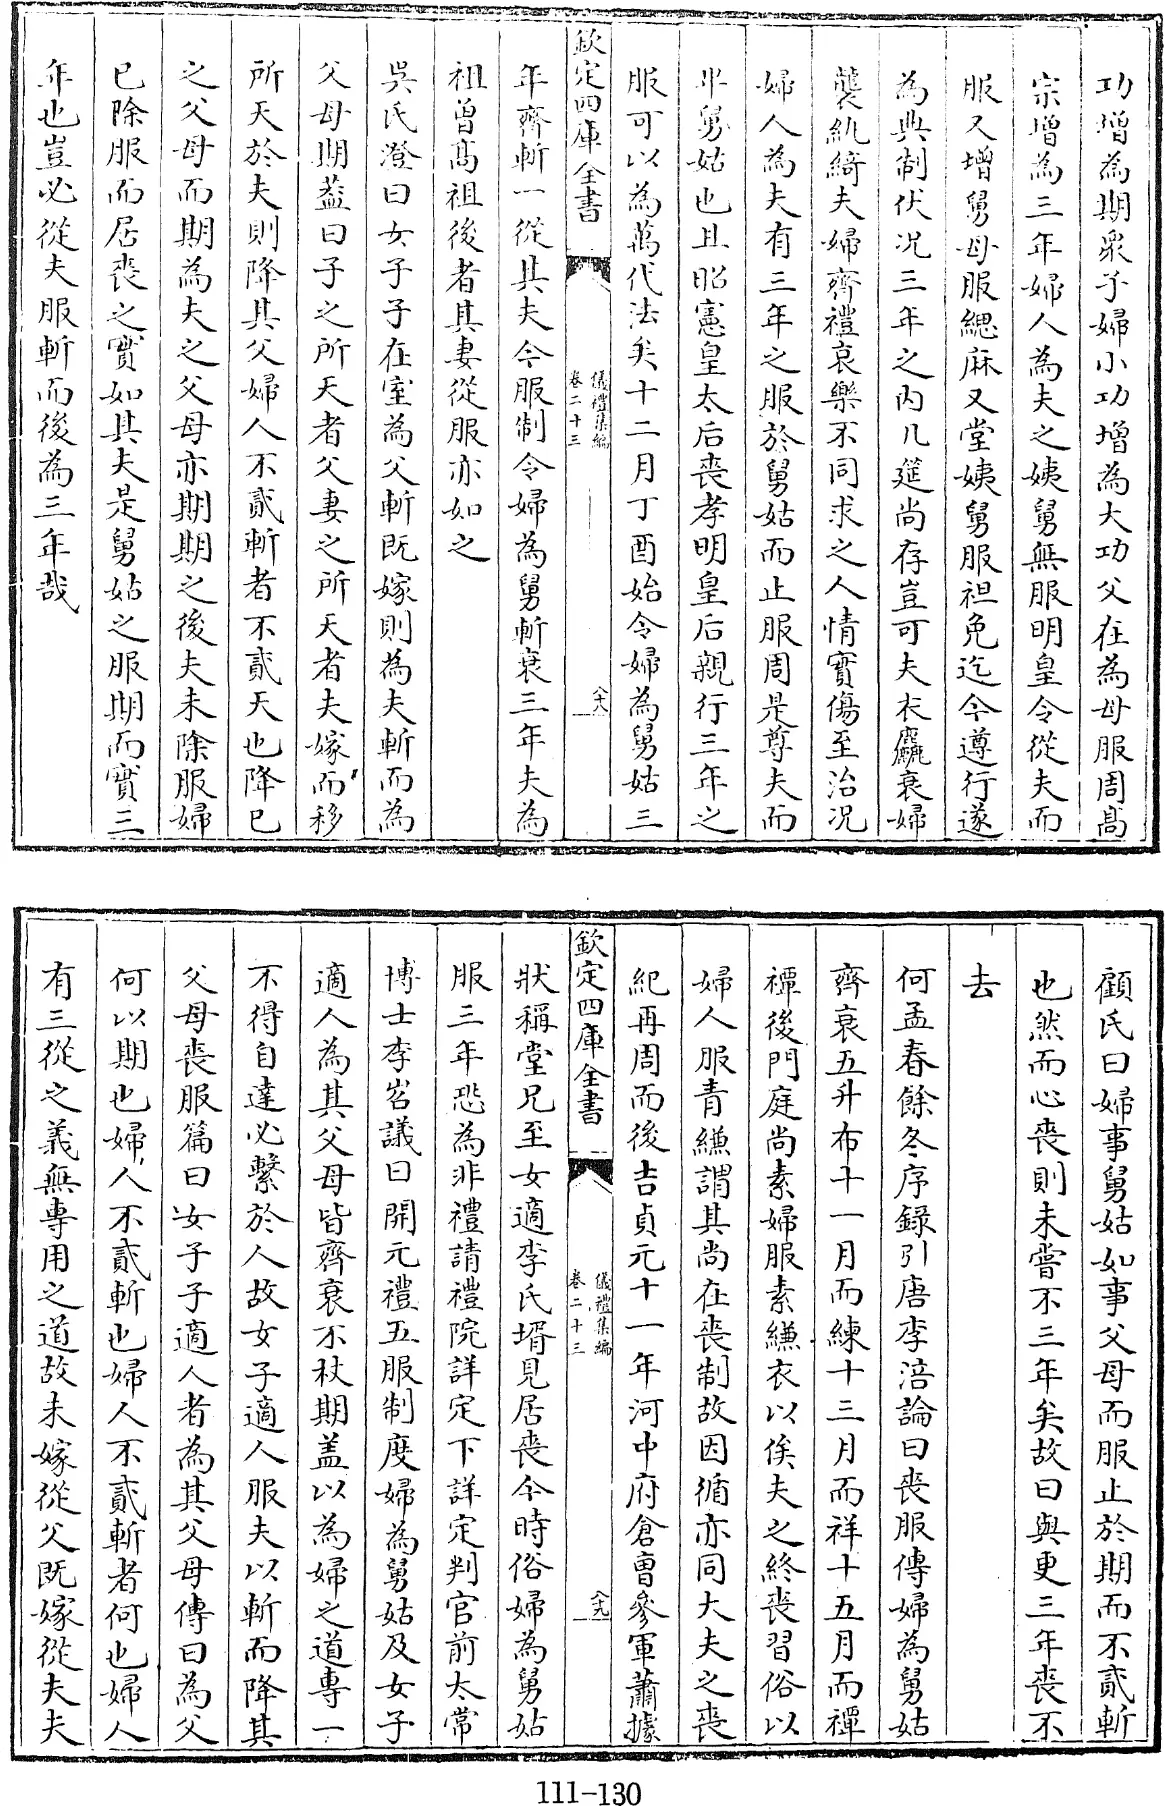 功增為期衆子婦小功增為大功父在為母服周髙
宗增為三年婦人為夫之姨舅無服明皇令從夫而
服又增舅母服緦麻又堂姨舅服袒免迄今遵行遂
為典制伏况三年之内几筵尚存豈可夫衣麤衰婦
襲紈綺夫婦齊禮哀樂不同求之人情實傷至治况
婦人為夫有三年之服於舅姑而止服周是尊夫而
卑舅姑也且昭憲皇太后喪孝明皇后親行三年之
服可以為萬代法矣十二月丁酉始令婦為舅姑三
欽定四庫全書
儀禮集編
卷二十三
六十八
年齊斬一從其夫今服制令婦為舅斬衰三年夫為
祖曾髙祖後者其妻從服亦如之
吳氏澄曰女子子在室為父斬既嫁則為夫斬而為
父母期葢曰子之所天者父妻之所天者夫嫁而移
所天於夫則降其父婦人不貳斬者不貳天也降已
之父母而期為夫之父母亦期期之後夫未除服婦
已除服而居喪之實如其夫是舅姑之服期而實三
年也豈必從夫服斬而後為三年哉
顧氏曰婦事舅姑如事父母而服止於期而不貳斬
也然而心喪則未嘗不三年矣故曰與更三年喪不
去
何孟春餘冬序録引唐李涪論曰喪服傳婦為舅姑
齊衰五升布十一月而練十三月而祥十五月而禫
禫後門庭尚素婦服素縑衣以俟夫之終喪習俗以
婦人服青縑謂其尚在喪制故因循亦同夫之喪
紀再周而後吉貞元十一年河中府倉曹參軍蕭據
欽定四庫全書
儀禮集編
卷二十三
六十九
狀稱堂兄至女適李氏壻見居喪今時俗婦為舅姑
服三年恐為非禮請禮院詳定下詳定判官前太常
博士李岧議曰開元禮五服制度婦為舅姑及女子
適人為其父母皆齊衰不杖期盖以為婦之道專一
不得自達必繫於人故女子適人服夫以斬而降其
父母喪服篇曰女子子適人者為其父母傳曰為父
何以期也婦人不貳斬也婦人不貳斬者何也婦人
有三從之義無專用之道故未嫁從父既嫁從夫夫
111-130